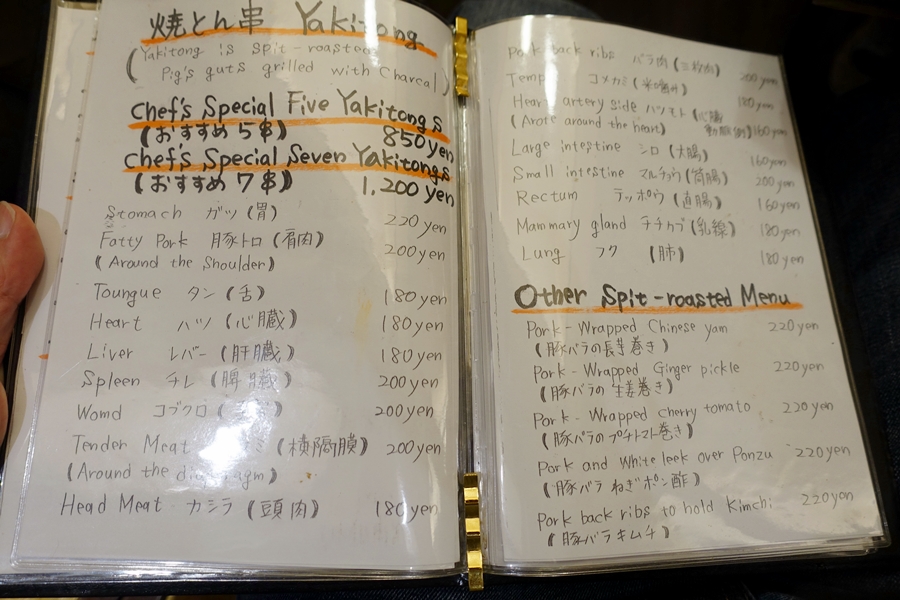 焼とん串 Yakitong
(Yakitong is spit-roasted
Pig's guts grilled with Charcal)
Chef's Special Five Yakitongs
(おすすめ 5串) 850yen
Chef's Special Seven Yakitongs
(おすすめ 7串) 1,200 yen
Stomach ガツ (胃) 220yen
Fatty Pork 豚トロ (肩肉) 200yen
(Around the Shoulder)
Toungue タン (舌) 180yen
Heart ハツ (心臓) 180yen
Liver レバー (肝臓) 180yen
Spleen チレ (脾臓) 200yen
Womd コブクロ 200yen
Tender Meat (横隔膜) 200yen
(Around the diaphragm)
Head Meat カシラ (頭肉) 180yen
Pork back ribs バラ肉 (三枚肉) 200yen
Temple コメカミ (米噛み) 180yen
Heart artery side ハツモト (心臓
(Arote around the heart) 動脈 160yen
Large intestine シロ (大腸) 160yen
Small intestine マルチョウ 200yen
Rectum テッポウ (直腸) 160yen
Mammary gland チチカブ (乳線) 180yen
Lung フク (肺) 180yen
Other Spit-roasted Menu
Pork-Wrapped Chinese yam 220yen
(豚バラの長芋巻き)
Pork-Wrapped Ginger pickle 220yen
(豚バラの生姜巻き)
Pork-Wrapped cherry tomato 220yen
(豚バラのプチトマト巻き)
Pork and White leek over Ponzu 220yen
(豚バラねぎポン酢)
Pork back ribs to hold Kimchi 220yen
(豚バラキムチ)